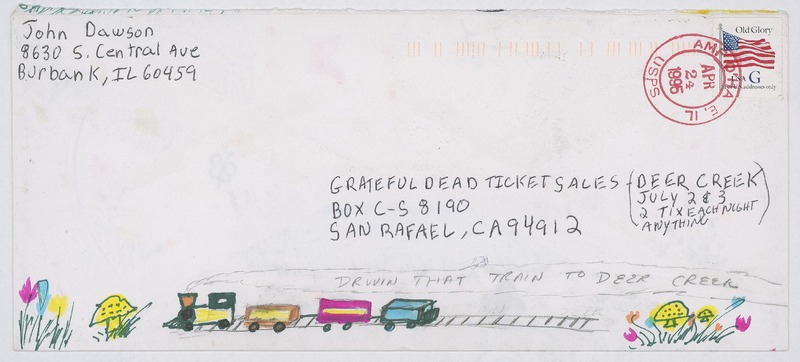 John Dawson
8630 S. Central Ave
Burbank, IL 60459
Old Glory
USA G
For U.S. addresses only
USPS
APR
24
1995
E, IL
GRATEFUL DEAD TICKET SALES
BOX C-S 8190
SAN RAFAEL, CA 94912
DEER CREEK
JULY 2 & 3
2 TIX EACH NIGHT
ANYTHING
DRIVIN THAT TRAIN TO DEER CREEK